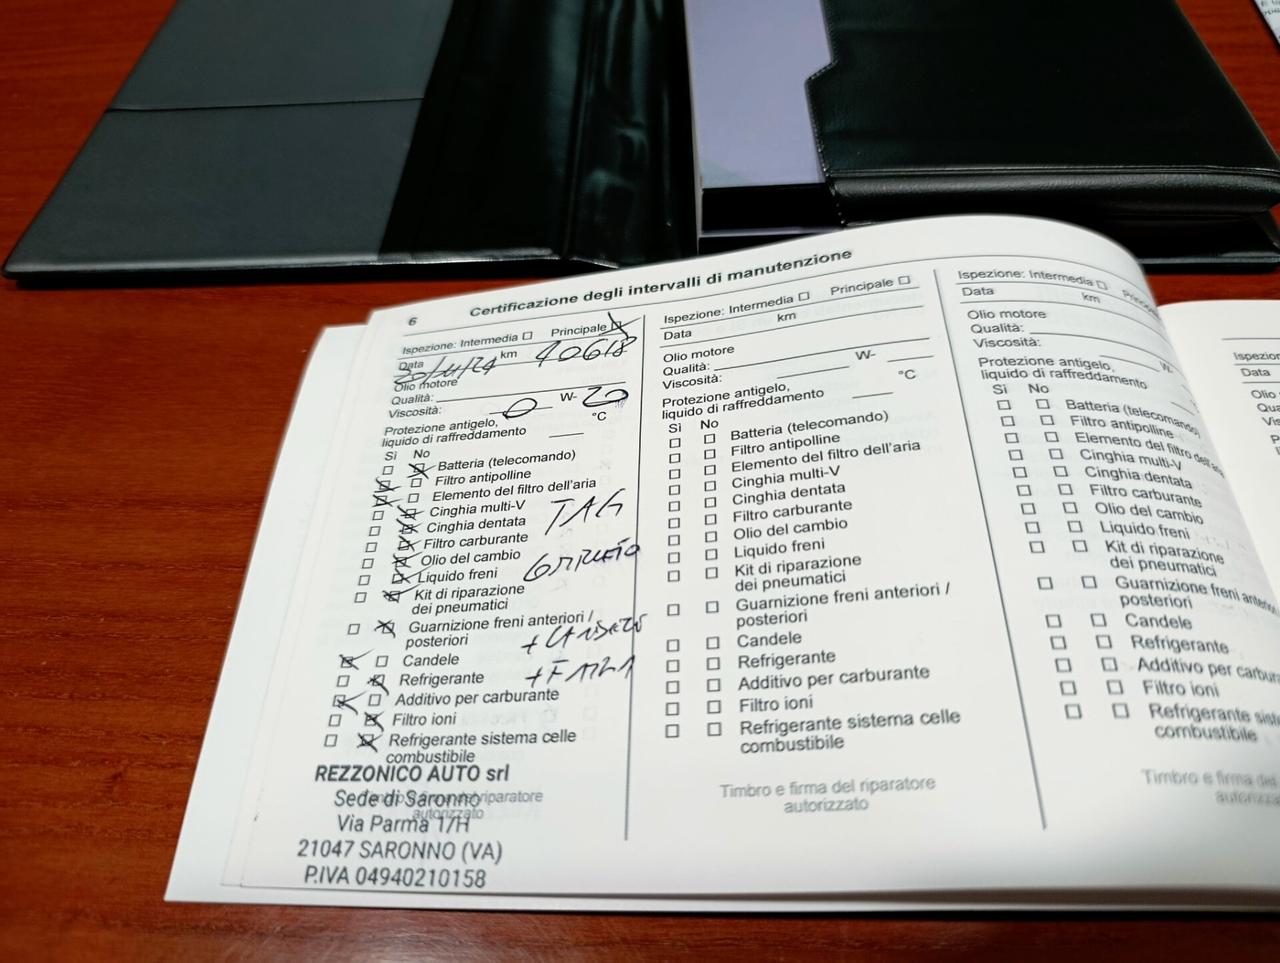 6
Certificazione degli intervalli di manutenzione
Ispezione: Intermedia Principale
Data 20/11/24 km 40618
Olio motore
Qualità:
Viscosità: 0 W- 20
Protezione antigelo,
liquido di raffreddamento °C
Sì No
Batteria (telecomando)
Filtro antipolline
Elemento del filtro dell'aria
Cinghia multi-V
Cinghia dentata TAG
Filtro carburante
Olio del cambio
Liquido freni
Kit di riparazione
dei pneumatici
Guarnizione freni anteriori /
posteriori
Candele
Refrigerante
Additivo per carburante
Filtro ioni
Refrigerante sistema celle
combustibile
REZZONICO AUTO srl
Sede di Saronno
riparatore
autorizzato
Via Parma 17/H
21047 SARONNO (VA)
P.IVA 04940210158
Ispezione: Intermedia Principale
Data km
Olio motore
Qualità:
Viscosità: W-
Protezione antigelo,
liquido di raffreddamento °C
Sì No
Batteria (telecomando)
Filtro antipolline
Elemento del filtro dell'aria
Cinghia multi-V
Cinghia dentata
Filtro carburante
Olio del cambio
Liquido freni
Kit di riparazione
dei pneumatici
Guarnizione freni anteriori /
posteriori
Candele
Refrigerante
Additivo per carburante
Filtro ioni
Refrigerante sistema celle
combustibile
Timbro e firma del riparatore
autorizzato
Ispezione: Intermedia
Data km
Olio motore
Qualità:
Viscosità: W-
Protezione antigelo,
liquido di raffreddamento
Sì No
Batteria (telecomando)
Filtro antipolline
Elemento del filtro
Cinghia multi-V
Cinghia dentata
Filtro carburante
Olio del cambio
Liquido freni
Kit di riparazione
dei pneumatici
Guarnizione freni
posteriori
Candele
Refrigerante
Additivo per
Filtro ioni
Refrigerante
combustibile
Timbro e firma del
Data